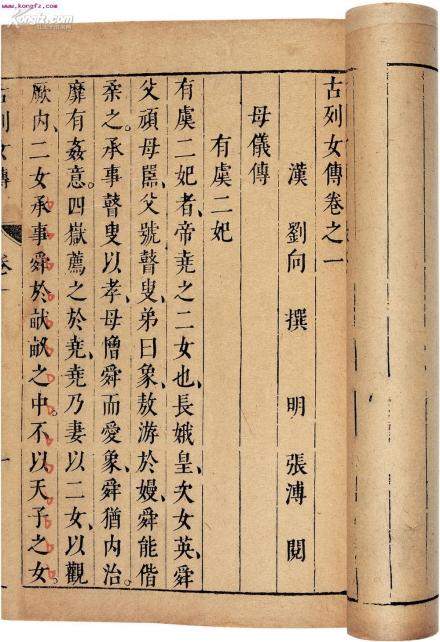 www.kongfz.com
古列女傳卷之一
漢 劉向 撰 明 張溥 閱
母儀傳
有虞二妃
有虞二妃者、帝堯之二女也、長娥皇、次女英、舜
父頑母嚚、父號瞽叟、弟曰象、敖游於嫚、舜能偕
柔之。承事瞽叟以孝、母憎舜而愛象、舜猶内治、
靡有姦意。四嶽薦之於堯、堯乃妻以二女、以觀
厥内、二女承事舜於畎畝之中、不以天子之女
古列女傳
卷一
一